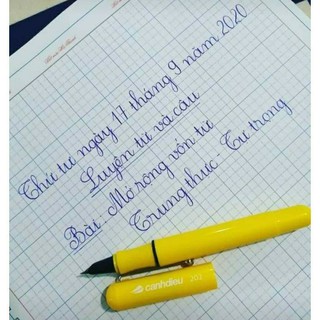 Thứ tư ngày 17 tháng 9 năm 2020
Luyện từ và câu
Bài - Mở rộng vốn từ
Trung thực - Tự trọng
canhdieu 303